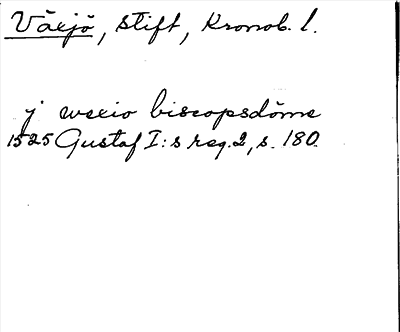 Växjö, stift, Kronob. l.
j wexio biscopsdöme
1525 Gustaf I:s reg. 2, s. 180.